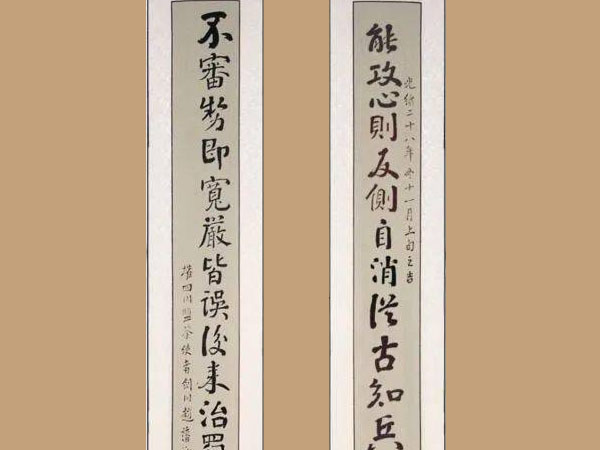 光緒二十八年冬十一月上旬之吉
能攻心則反側自消從古知兵
不審勢即寬嚴皆誤後來治蜀
權四川鹽茶使者劍川趙藩